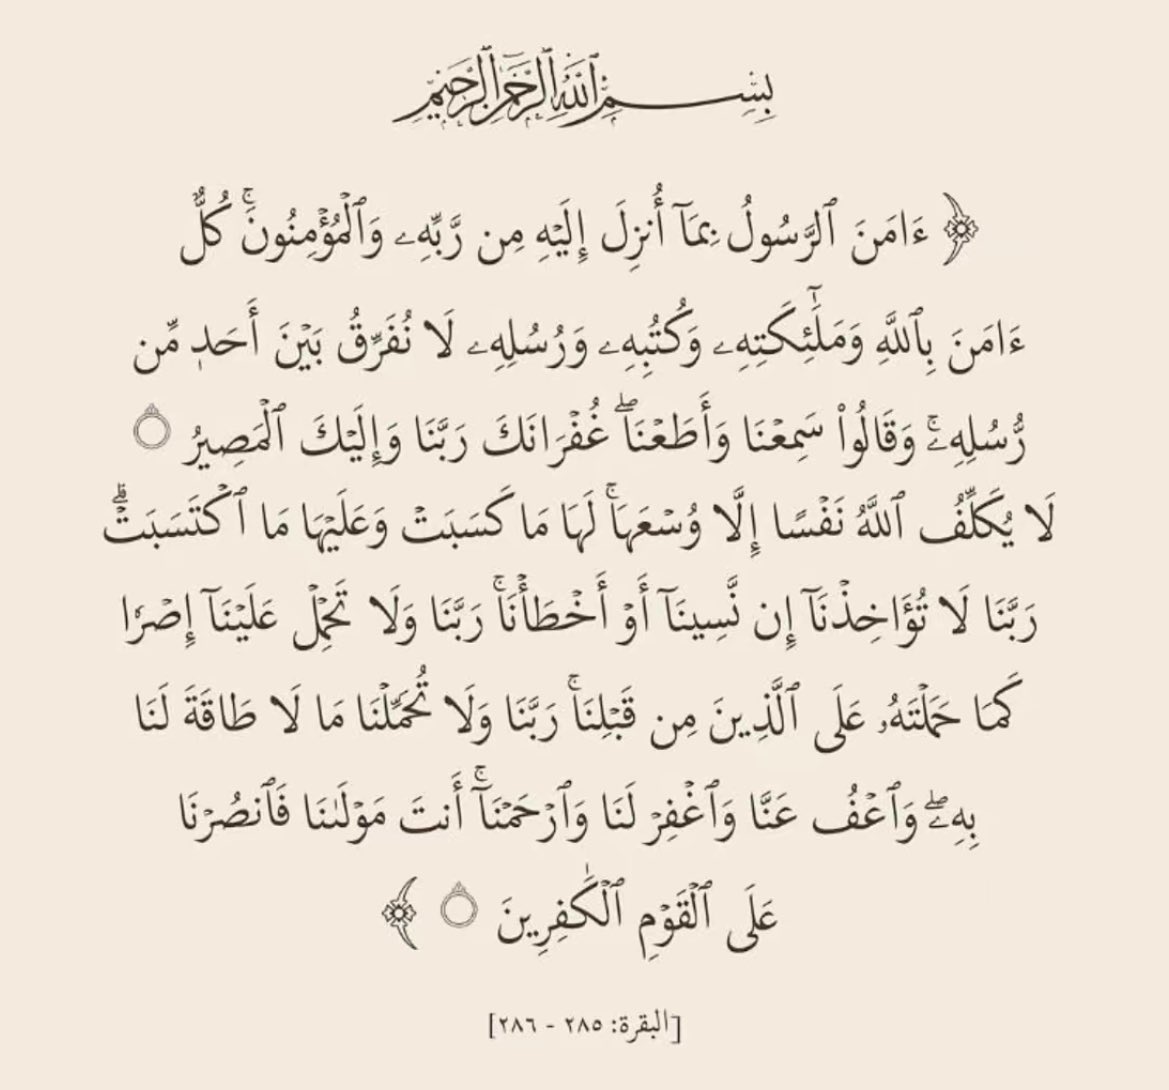 بِسْمِ ٱللَّهِ ٱلرَّحْمَٰنِ ٱلرَّحِيمِ
﴿ ءَامَنَ ٱلرَّسُولُ بِمَآ أُنزِلَ إِلَيْهِ مِن رَّبِّهِۦ وَٱلْمُؤْمِنُونَۚ كُلٌّ
ءَامَنَ بِٱللَّهِ وَمَلَٰٓئِكَتِهِۦ وَكُتُبِهِۦ وَرُسُلِهِۦ لَا نُفَرِّقُ بَيْنَ أَحَدٍ مِّن
رُّسُلِهِۦۚ وَقَالُوا۟ سَمِعْنَا وَأَطَعْنَاۖ غُفْرَانَكَ رَبَّنَا وَإِلَيْكَ ٱلْمَصِيرُ ۝
لَا يُكَلِّفُ ٱللَّهُ نَفْسًا إِلَّا وُسْعَهَاۚ لَهَا مَا كَسَبَتْ وَعَلَيْهَا مَا ٱكْتَسَبَتْۗ
رَبَّنَا لَا تُؤَاخِذْنَآ إِن نَّسِينَآ أَوْ أَخْطَأْنَاۚ رَبَّنَا وَلَا تَحْمِلْ عَلَيْنَآ إِصْرًا
كَمَا حَمَلْتَهُۥ عَلَى ٱلَّذِينَ مِن قَبْلِنَاۚ رَبَّنَا وَلَا تُحَمِّلْنَا مَا لَا طَاقَةَ لَنَا
بِهِۦۖ وَٱعْفُ عَنَّا وَٱغْفِرْ لَنَا وَٱرْحَمْنَآۚ أَنتَ مَوْلَىٰنَا فَٱنصُرْنَا
عَلَى ٱلْقَوْمِ ٱلْكَٰفِرِينَ ۝ ﴾
[البقرة: ٢٨٥ - ٢٨٦]